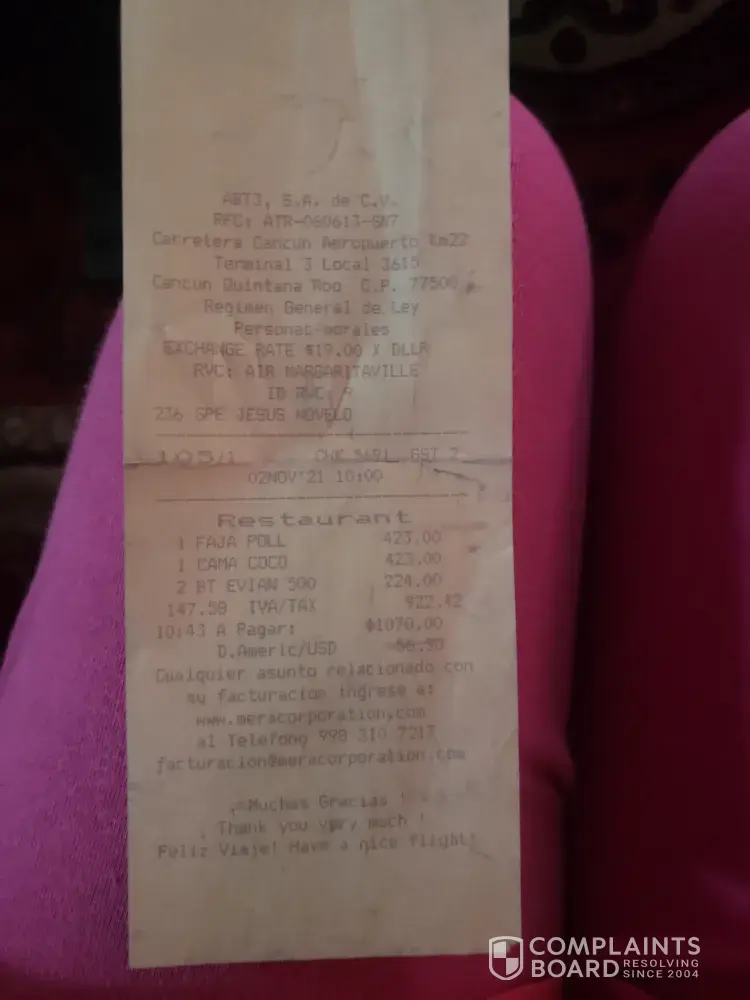 ABT3, S.A. de C.V.
RFC: ATR-060613-GN7
Carretera Cancun Aeropuerto Km22
Terminal 3 Local 3615
Cancun Quintana Roo C.P. 77500
Regimen General de Ley
Personas morales
EXCHANGE RATE $19.00 X DLLR
RVC: AIR MARGARITAVILLE
ID RVC: 9
236 GPE JESUS NOVELO
105/1 CHK 5691 GST 2
02NOV'21 10:00
Restaurant
1 FAJA POLL 423.00
1 CAMA COCO 423.00
2 BT EVIAN 500 224.00
147.58 IVA/TAX 922.42
10:43 A Pagar: $1070.00
D.Americ/USD 56.30
Cualquier asunto relacionado con
su facturacion ingrese a:
www.meracorporation.com
al Telefono 998 310 7217
facturacion@meracorporation.com
Muchas Gracias !
Thank you very much !
Feliz Viaje! Have a nice flight!
COMPLAINTS
BOARD RESOLVING
SINCE 2004